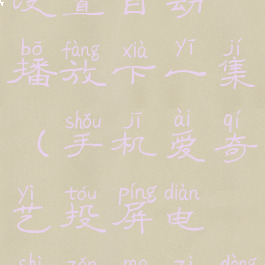 设置自动
bō fàng xià yī jí
播放下一集
shǒu jī ài qí
（手机爱奇
yì tóu píng diàn
艺投屏电